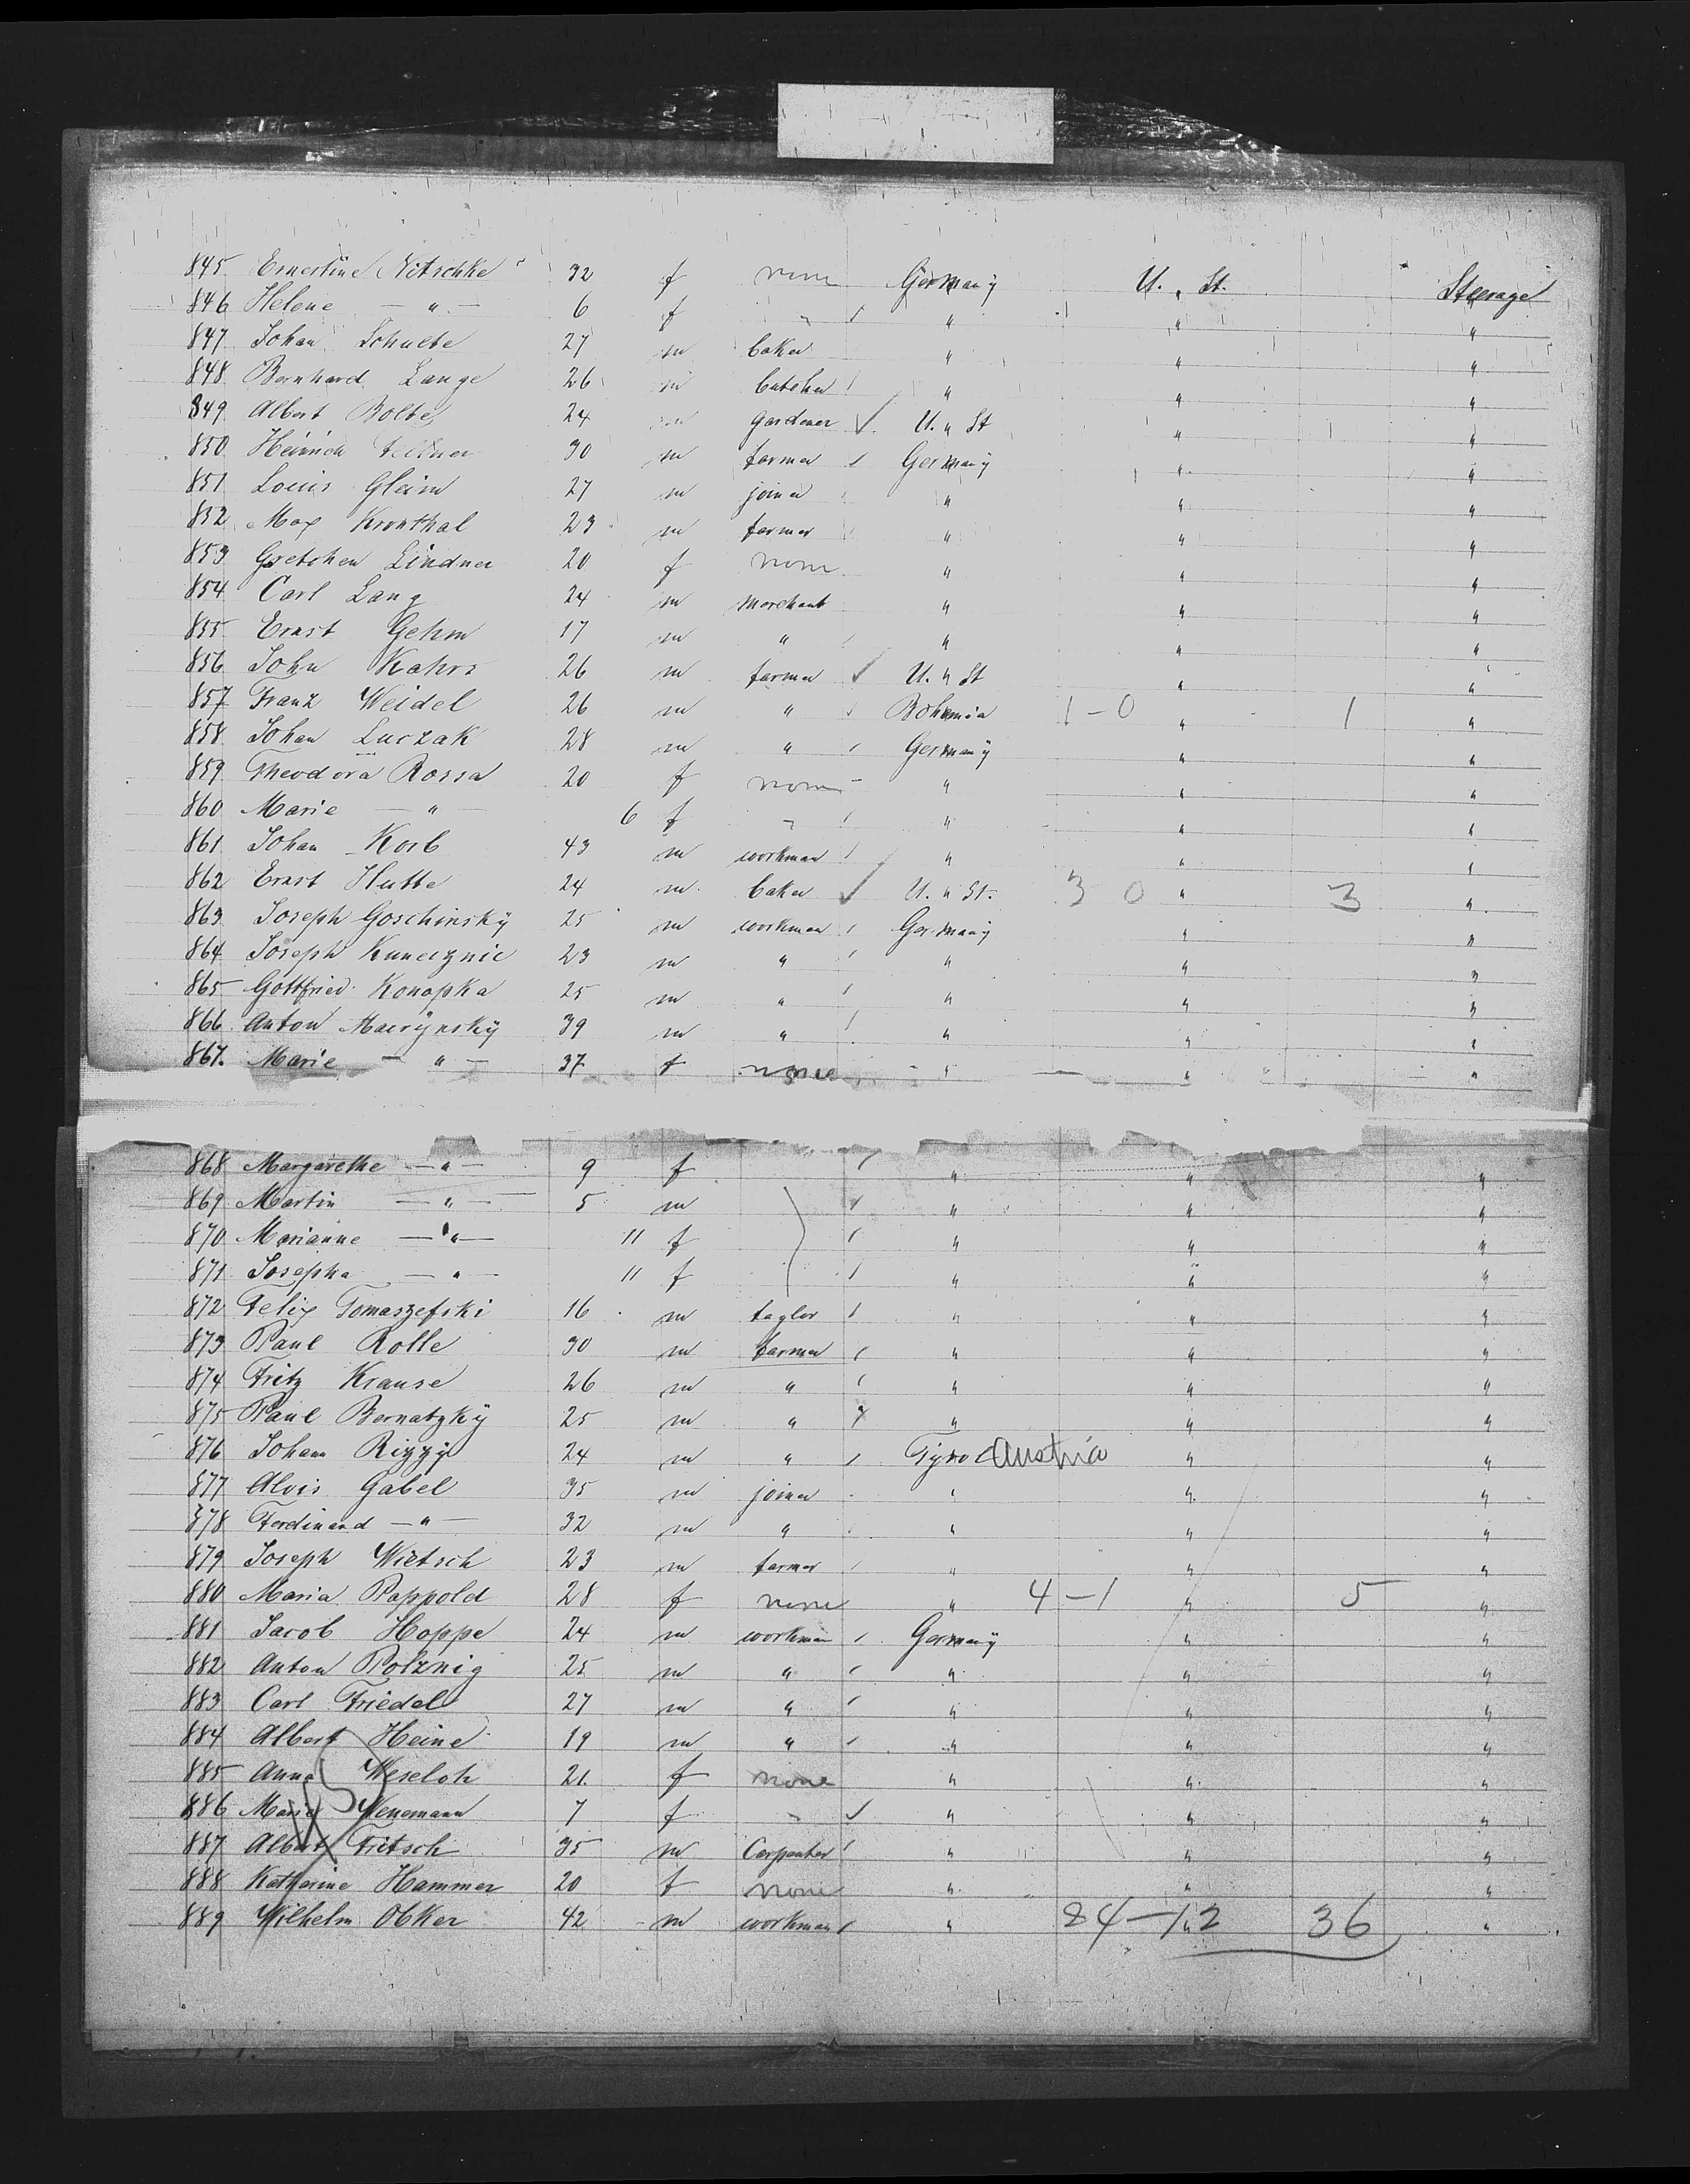 845 Ernestine Nitschke 32 f none Germany U. " St. Steerage
846 Helene — " — 6 f " " " "
847 Johan Schulte 27 m baker " " "
848 Bernhard Lange 26 m butcher " " "
849 Albert Bolte 24 m gardener ✓ U. " St " "
850 Heinrich 30 m farmer Germany " "
851 Louis Gleim 27 m joiner " " "
852 Max Kronthal 23 m farmer " " "
853 Gretchen Lindner 20 f none " " "
854 Carl Lang 24 m merchant " " "
855 Ernst Gehm 17 m " " " "
856 John Kahrs 26 m farmer ✓ U. " St " "
857 Franz Weidel 26 m " Bohemia 1-0 " 1 "
858 Johan Luczak 28 m " Germany " "
859 Theodora Rossa 20 f none " " "
860 Marie — " — 6 f " " " "
861 Johan Korb 43 m workman " " "
862 Ernst Hutte 24 m baker ✓ U. " St. 3 0 " 3 "
863 Joseph Goschinsky 25 m workman Germany " "
864 Joseph Kunecznic 23 m " " " "
865 Gottfried Konopka 25 m " " " "
866 Anton Macrynsky 39 m " " " "
867. Marie — " — 37 f none " " "
868 Margarethe — " — 9 f " " "
869 Martin — " — 5 m " " "
870 Marianne — " — 11 f " " "
871 Josepha — " — 11 f " " "
872 Felix Tomaszefski 16 m taylor " " "
873 Paul Rolle 30 m farmer " " "
874 Fritz Krause 26 m " " " "
875 Paul Bernatzky 25 m " " " "
876 Johann Rizzy 24 m " Tyrol Austria " "
877 Alois Gabel 35 m joiner " " "
878 Ferdinand — " — 32 m " " " "
879 Joseph Wietsch 23 m farmer " " "
880 Maria Pappold 28 f none " 4-1 " 5 "
881 Jacob Hoppe 24 m workman Germany " "
882 Anton Polznig 25 m " " " "
883 Carl Friedel 27 m " " " "
884 Albert Heine 19 m " " " "
885 Anna Weseloh 21. f none " " "
886 Marie Wenemann 7 f " ✓ " " "
887 Albert Fritsch 35 m Carpenter " " "
888 Katharine Hammer 20 f none " " "
889 Wilhelm Obker 42 m workman " 24-12 " 36 "